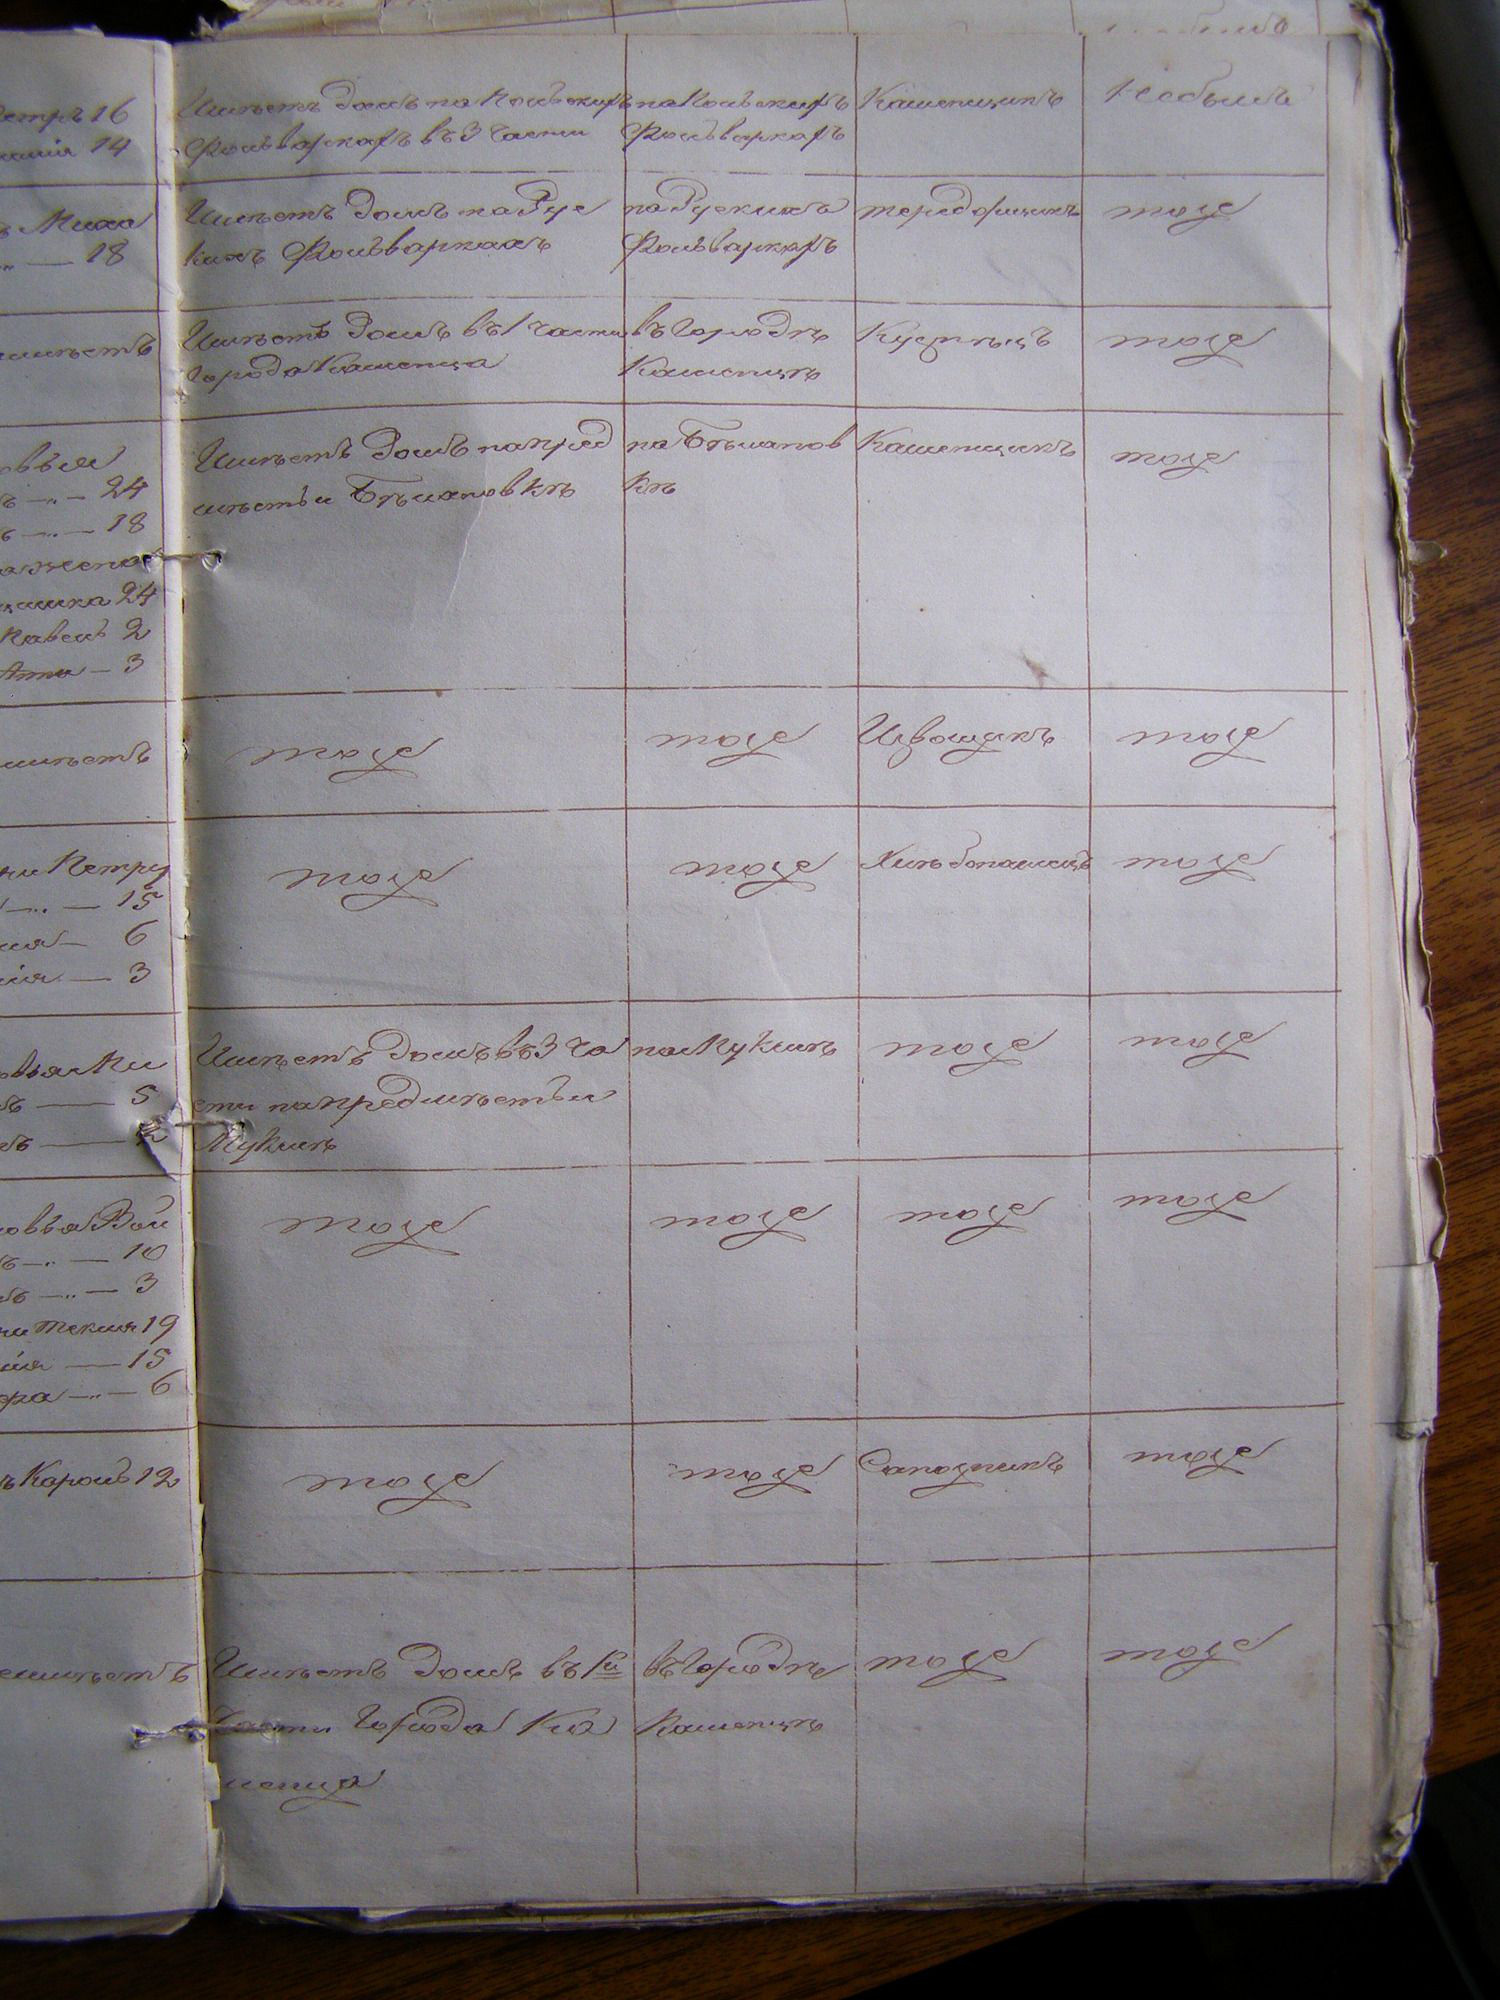 Петръ 16
14
Имѣетъ домъ на Польскихъ
Фольваркахъ въ 3 части
на Польскихъ
Фольваркахъ
Каменщикъ
Небылъ
Миха
18
Имѣетъ домъ на Рус
кихъ Фольваркахъ
на Рускихъ
Фольваркахъ
тоже
имѣетъ
Имѣетъ домъ въ 1 части
города Каменца
въ городѣ
Каменцѣ
Кузнецъ
тоже
овья
24
18
жена
24
Павелъ 2
3
Имѣетъ домъ на пред
мѣстьи Бѣлановкѣ
на Бѣланов
кѣ
Каменщикъ
тоже
имѣетъ
тоже
тоже
Извощикъ
тоже
Петру
15
6
3
тоже
тоже
Хлѣбопашецъ
тоже
овья Ми
5
2
Имѣетъ домъ въ 3 ча
сти на предмѣстьи
Мукшѣ
на Мукшѣ
тоже
тоже
овья Вой
10
3
Текля 19
15
6
тоже
тоже
тоже
тоже
Кароль 12
тоже
тоже
Сапожникъ
тоже
имѣетъ
Имѣетъ домъ въ 1й
части города Ка
менца
въ городѣ
Каменцѣ
тоже
тоже